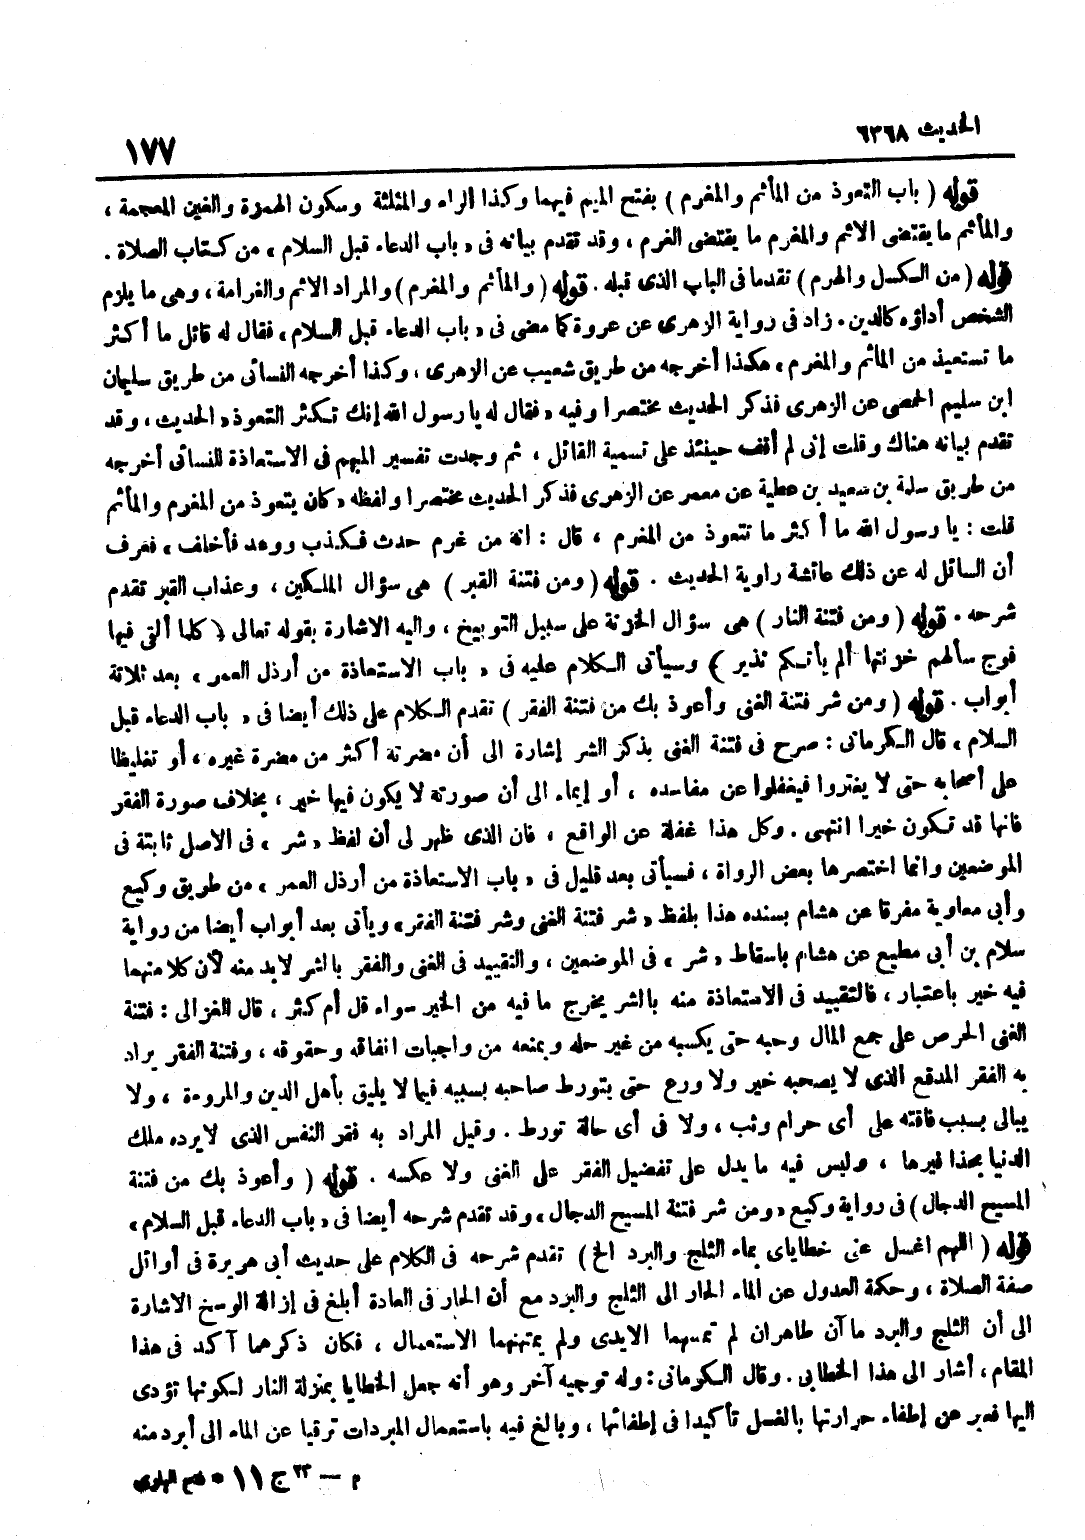 الحديث ٦٣٦٨
١٧٧
قوله ( باب التعوذ من المأثم والمغرم ) بفتح الميم فيهما وكذا الراء والمثلثة وسكون الهمزة والغين المعجمة ،
والمأثم ما يقتضى الاثم والمغرم ما يقتضى الغرم ، وقد تقدم بيانه فى « باب الدعاء قبل السلام » من كتاب الصلاة .
قوله ( من الكسل والهرم ) تقدما فى الباب الذى قبله . قوله ( والمأثم والمغرم ) والمراد الاثم والغرامة ، وهى ما يلزم
الشخص أداؤه كالدين . زاد فى رواية الزهرى عن عروة كما مضى فى « باب الدعاء قبل السلام » فقال له قائل ما أكثر
ما تستعيذ من المأثم والمغرم » هكذا أخرجه من طريق شعيب عن الزهرى ، وكذا أخرجه النسائى من طريق سليمان
ابن سليم الحمصى عن الزهرى فذكر الحديث مختصرا وفيه « فقال له يا رسول الله إنك تكثر التعوذ » الحديث ، وقد
تقدم بيانه هناك وقلت إنى لم أقف حينئذ على تسمية القائل ، ثم وجدت تفسير المبهم فى الاستعاذة للنسائى أخرجه
من طريق سلمة بن سعيد بن عطية عن معمر عن الزهرى فذكر الحديث مختصرا ولفظه « كان يتعوذ من المغرم والمأثم
قلت : يا رسول الله ما أكثر ما تتعوذ من المغرم ، قال : انه من غرم حدث فكذب ووعد فأخلف » فعرف
أن السائل له عن ذلك عائشة راوية الحديث . قوله ( ومن فتنة القبر ) هى سؤال الملكين ، وعذاب القبر تقدم
شرحه . قوله ( ومن فتنة النار ) هى سؤال الخزنة على سبيل التوبيخ ، واليه الاشارة بقوله تعالى ﴿ كلما ألقى فيها
فوج سألهم خزنتها ألم يأتكم نذير ﴾ وسيأتى الكلام عليه فى « باب الاستعاذة من أرذل العمر » بعد ثلاثة
أبواب . قوله ( ومن شر فتنة الغنى وأعوذ بك من فتنة الفقر ) تقدم الكلام على ذلك أيضا فى « باب الدعاء قبل
السلام » قال الكرمانى : صرح فى فتنة الغنى بذكر الشر إشارة الى أن مضرته أكثر من مضرة غيره ، أو تغليظا
على أصحابه حتى لا يغتروا فيغفلوا عن مفاسده ، أو إيماء الى أن صورته لا يكون فيها خير ، بخلاف صورة الفقر
فانها قد تكون خيرا انتهى . وكل هذا غفلة عن الواقع ، فان الذى ظهر لى أن لفظ « شر » فى الاصل ثابتة فى
الموضعين وانما اختصرها بعض الرواة ، فسيأتى بعد قليل فى « باب الاستعاذة من أرذل العمر » من طريق وكيع
وأبى معاوية مفرقا عن هشام بسنده هذا بلفظ « شر فتنة الغنى وشر فتنة الفقر » ويأتى بعد أبواب أيضا من رواية
سلام بن أبى مطيع عن هشام باسقاط « شر » فى الموضعين ، والتقييد فى الغنى والفقر بالشر لابد منه لأن كلا منهما
فيه خير باعتبار ، فالتقييد فى الاستعاذة منه بالشر يخرج ما فيه من الخير سواء قل أم كثر ، قال الغزالى : فتنة
الغنى الحرص على جمع المال وحبه حتى يكسبه من غير حله ويمنعه من واجبات انفاقه وحقوقه ، وفتنة الفقر يراد
به الفقر المدقع الذى لا يصحبه خير ولا ورع حتى يتورط صاحبه بسببه فيما لا يليق بأهل الدين والمروءة ، ولا
يبالى بسبب فاقته على أى حرام وثب ، ولا فى أى حالة تورط . وقيل المراد به فقر النفس الذى لا يرده ملك
الدنيا بحذافيرها ، وليس فيه ما يدل على تفضيل الفقر على الغنى ولا عكسه . قوله ( وأعوذ بك من فتنة
المسيح الدجال ) فى رواية وكيع « ومن شر فتنة المسيح الدجال » وقد تقدم شرحه أيضا فى « باب الدعاء قبل السلام »
قوله ( اللهم اغسل عنى خطاياى بماء الثلج والبرد الخ ) تقدم شرحه فى الكلام على حديث أبى هريرة فى أوائل
صفة الصلاة ، وحكمة العدول عن الماء الحار الى الثلج والبرد مع أن الحار فى العادة أبلغ فى إزالة الوسخ الاشارة
الى أن الثلج والبرد ماآن طاهران لم تمسهما الايدى ولم يمتهنهما الاستعمال ، فكان ذكرهما آكد فى هذا
المقام ، أشار الى هذا الخطابى . وقال الكرمانى : وله توجيه آخر وهو أنه جعل الخطايا بمنزلة النار لكونها تؤدى
اليها فعبر عن إطفاء حرارتها بالغسل تأكيدا فى إطفائها ، وبالغ فيه باستعمال المبردات ترقيا عن الماء الى أبرد منه
م — ٢٣ ج ١١ * فتح البارى